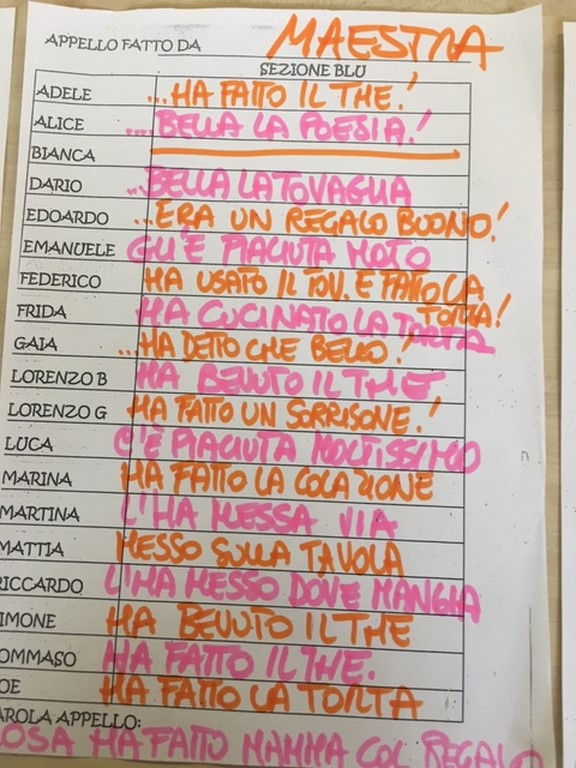 APPELLO FATTO DA MAESTRA
SEZIONE BLU
ADELE ...HA FATTO IL THE!
ALICE ....BELLA LA POESIA!
BIANCA
DARIO ...BELLA LA TOVAGLIA
EDOARDO ...ERA UN REGALO BUONO!
EMANUELE GLI È PIACIUTA MOTO
FEDERICO HA USATO IL TOV. E FATTO LA TORTA!
FRIDA HA CUCINATO LA TORTA
GAIA ...HA DETTO CHE BELLO!
LORENZO B HA BEVUTO IL THE
LORENZO G HA FATTO UN SORRISONE!
LUCA C'È PIACIUTA MOLTISSIMO
MARINA HA FATTO LA COLAZIONE
MARTINA L'HA MESSA VIA
MATTIA MESSO SULLA TAVOLA
RICCARDO L'HA MESSO DOVE MANGIA
IMONE HA BEVUTO IL THE
OMMASO HA FATTO IL THE.
OE HA FATTO LA TORTA
AROLA APPELLO:
COSA HA FATTO MAMMA COL REGALO